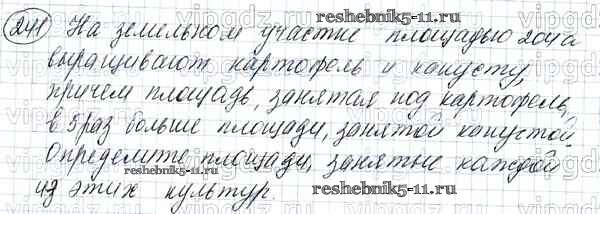 reshebnik5-11.ru
241 На земельном участке площадью 204 а
выращивают картофель и капусту,
причем площадь, занятая под картофель,
в 5 раз больше площади, занятой капустой.
Определите площади, занятые каждой
из этих культур.
reshebnik5-11.ru